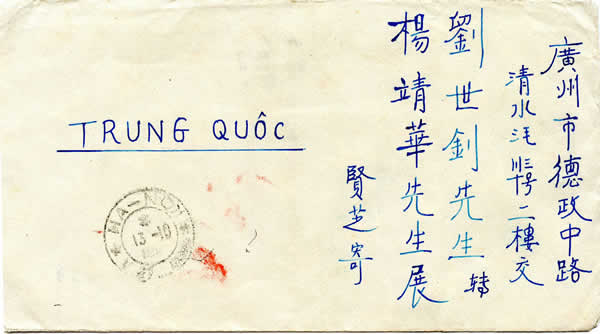 廣州市德政中路
清水 号二樓交
劉世釗先生转
楊靖華先生展
賢芝寄
TRUNG QUÔC
HA-NOI
13-10